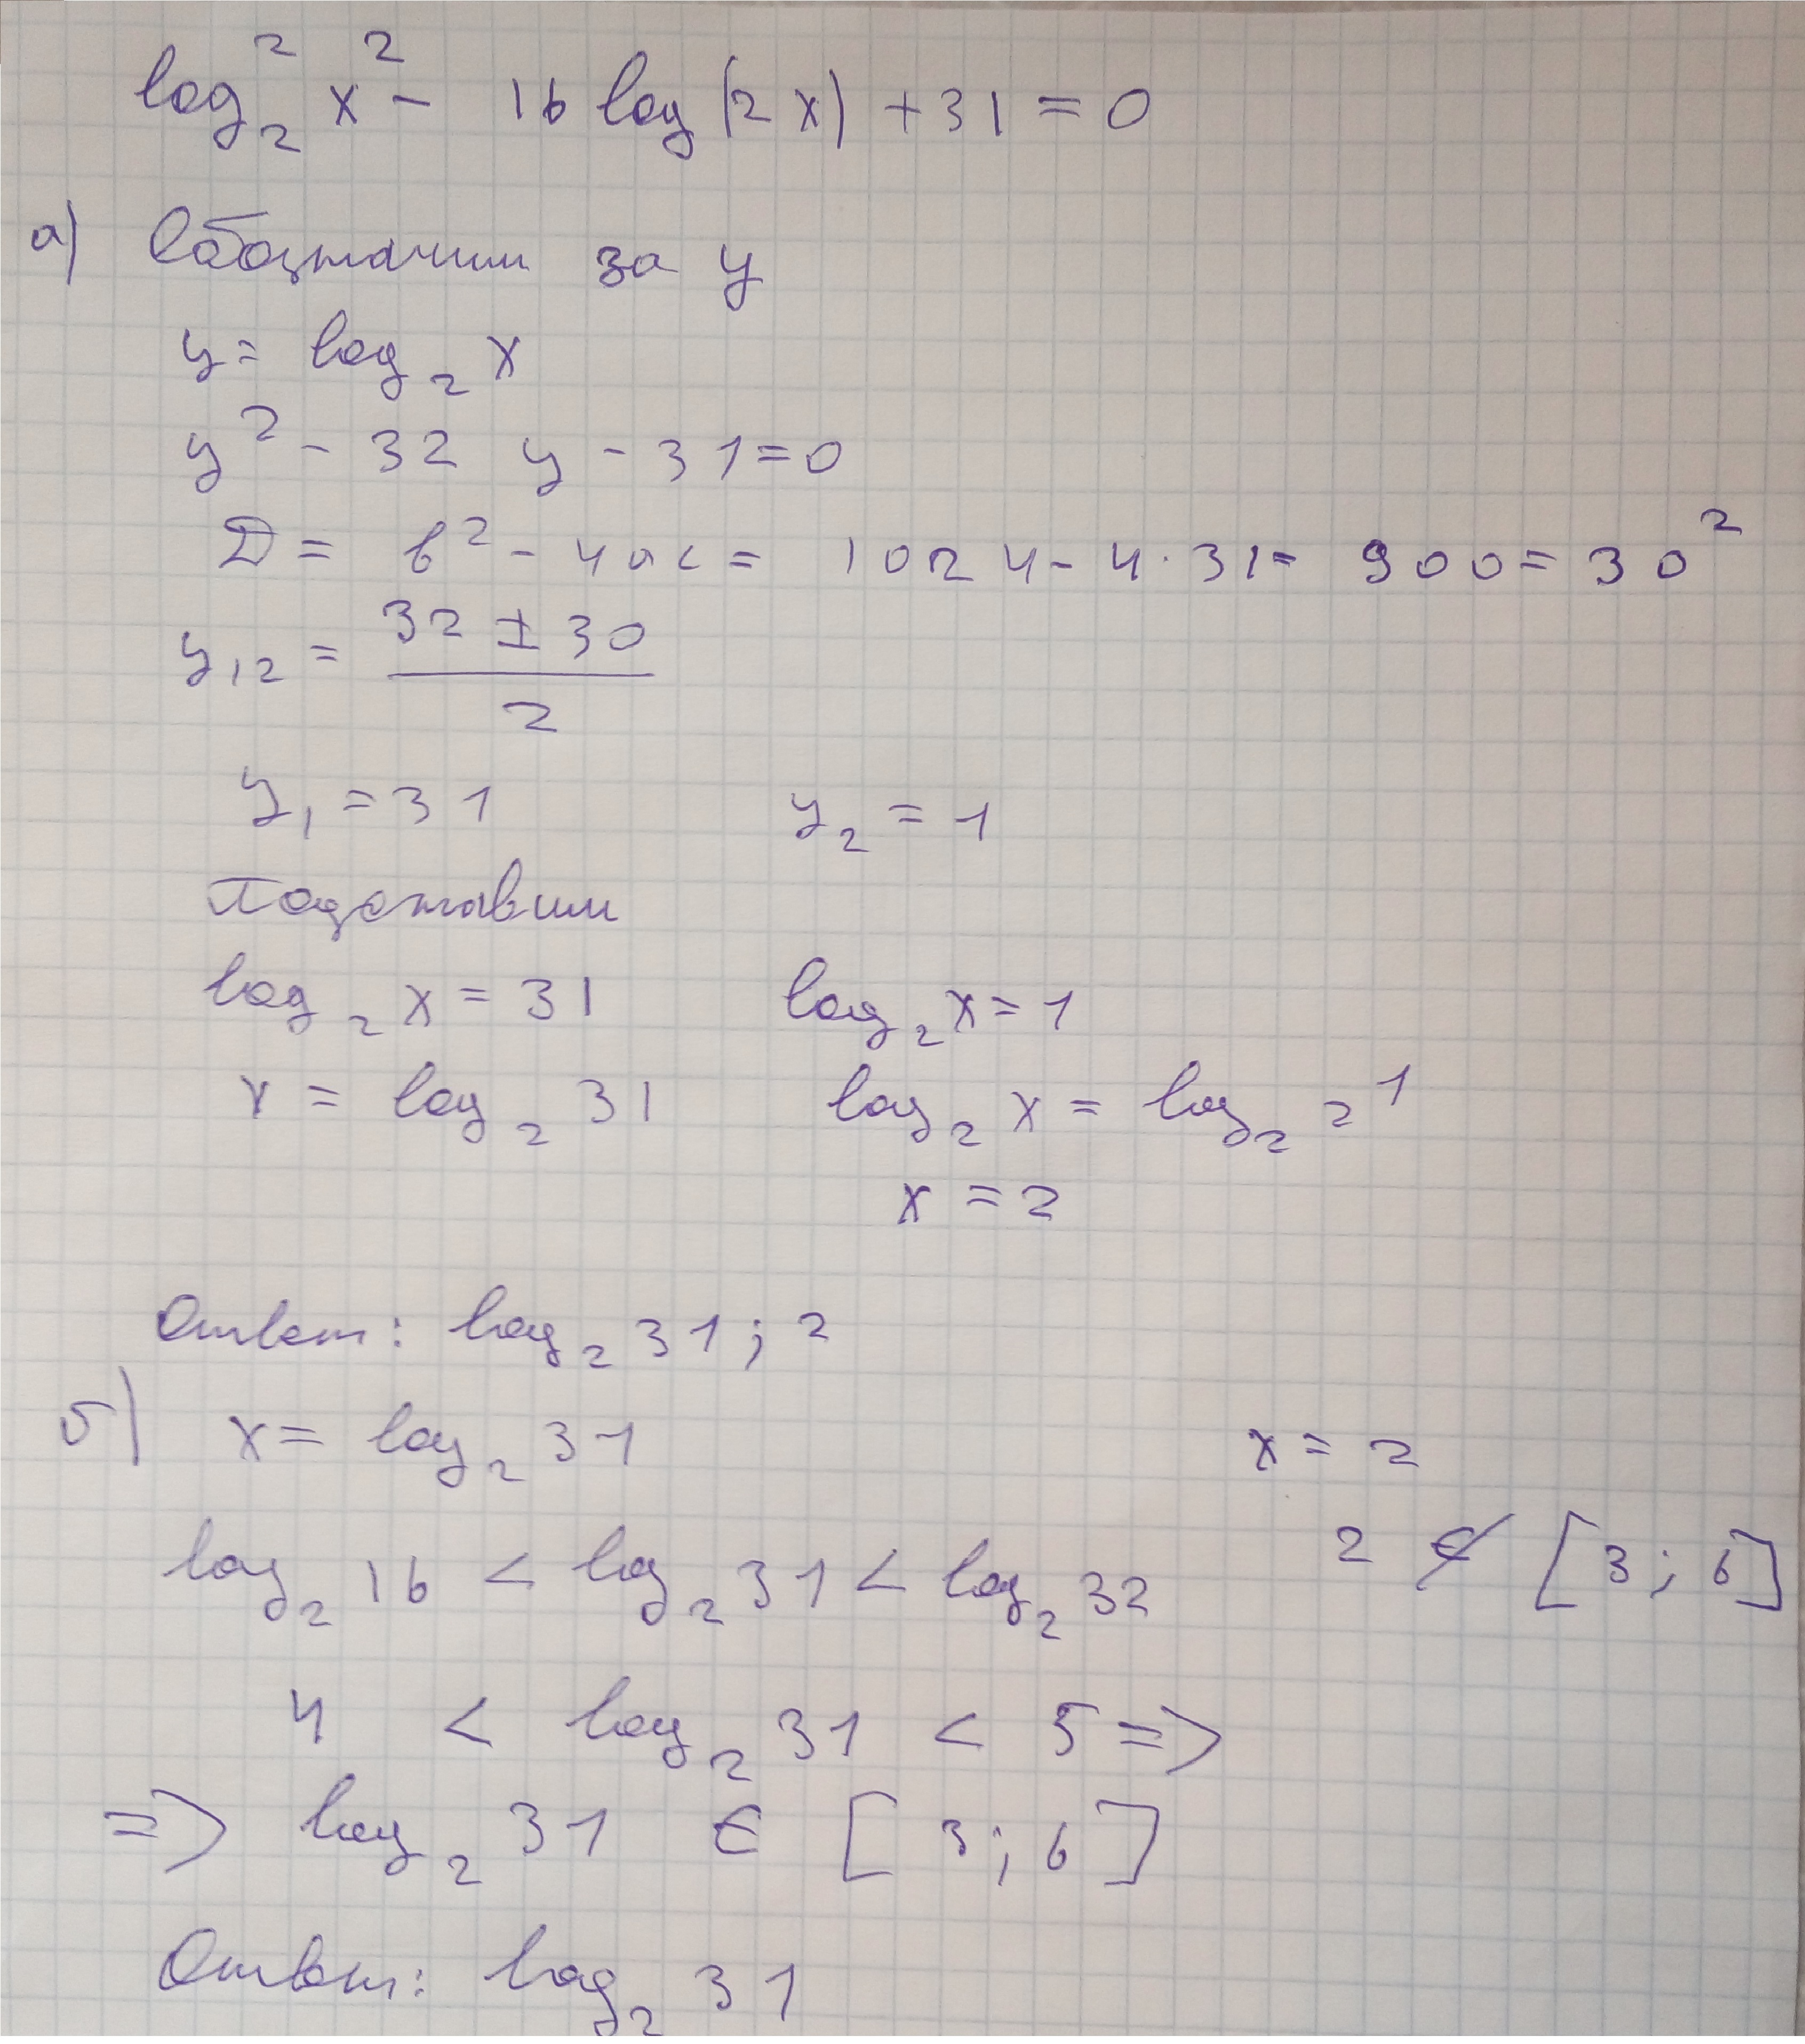 log₂² x² - 16 log (2x) + 31 = 0
а) Обозначим за y
y = log₂ x
y² - 32 y - 31 = 0
D = b² - 4ac = 1024 - 4·31 = 900 = 30²
y₁₂ = (32 ± 30) / 2
y₁ = 31 y₂ = 1
Подставим
log₂ x = 31 log₂ x = 1
x = log₂ 31 log₂ x = log₂ 2¹
x = 2
Ответ: log₂ 31; 2
б) x = log₂ 31 x = 2
log₂ 16 < log₂ 31 < log₂ 32 2 ∉ [3; 6]
4 < log₂ 31 < 5 =>
=> log₂ 31 ∈ [3; 6]
Ответ: log₂ 31